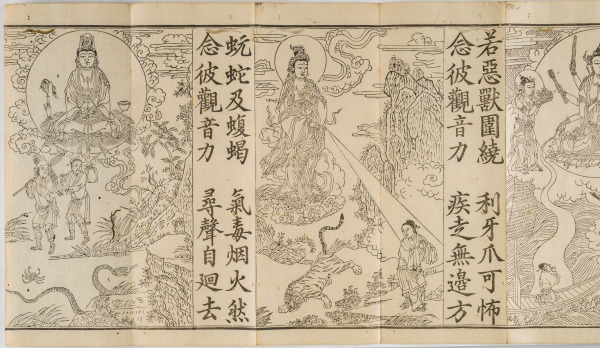 若惡獸圍繞 利牙爪可怖
念彼觀音力 疾走無邊方
蚖蛇及蝮蝎 氣毒烟火然
念彼觀音力 尋聲自迴去